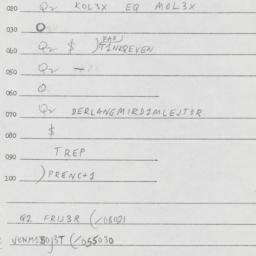 020 Q2 KOL3X EQ MOL3X
030 O
040 Q2 $ )T1NKQEVEN
050 Q2
060 O
070 Q2 DERLANGMIRD1MLEJT3R
080 $
090 TREP
100 )PRENC+1
Q2 FRIJ3R (/08021
VONM1BOJ3T (/055030